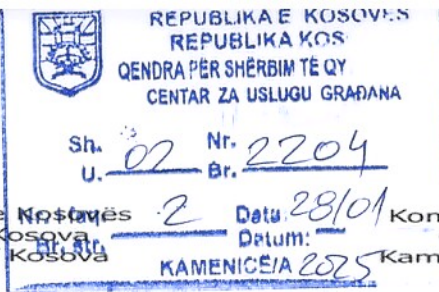 REPUBLIKA E KOSOVËS
REPUBLIKA KOS
QENDRA PËR SHËRBIM TË QY
CENTAR ZA USLUGU GRAĐANA
Sh. 02 Nr. 2204
U. Br.
Kosovës 2 Data: 28/01 Kom
Kosova Br. str. Datum:
Kosova KAMENICË/A 2025 Kam